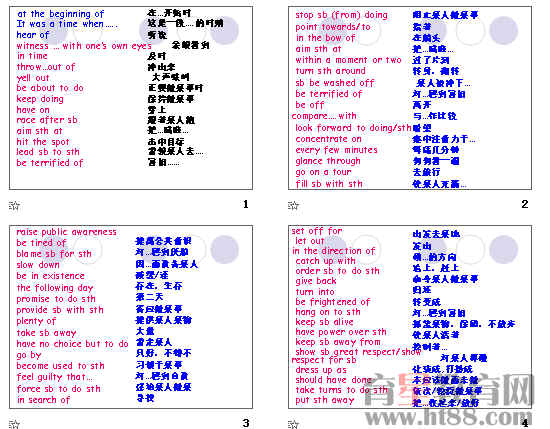 at the beginning of 在…开始时
It was a time when….. 这是一段….的时期
hear of 听说
witness … with one's own eyes 亲眼看到
in time 及时
throw…out of 冲出来
yell out 大声喊叫
be about to do 正要做某事时
keep doing 保持做某事
have on 穿上
race after sb 跟着某人跑
aim sth at 把…瞄准…
hit the spot 击中目标
lead sb to sth 带领某人去….
be terrified of 害怕……
1
stop sb (from) doing 阻止某人做某事
point towards/to 指着
in the bow of 在船头
aim sth at 把…瞄准…
within a moment or two 过了片刻
turn sth around 转身，掉转
sb be washed off 某人被冲下…
be terrified of 对…感到害怕
be off 离开
compare…. with 与…作比较
look forward to doing/sth 盼望
concentrate on 集中注意力于…
every few minutes 每隔几分钟
glance through 匆匆看一遍
go on a tour 去旅行
fill sb with sth 使某人充满…
2
raise public awareness 提高公共意识
be tired of 对…感到厌烦
blame sb for sth 因…而责备某人
slow down 减慢/速
be in existence 存在，生存
the following day 第二天
promise to do sth 答应做某事
provide sb with sth 提供某人某物
plenty of 大量
take sb away 带走某人
have no choice but to do 只好，不得不
go by
become used to sth 习惯于某事
feel guilty that… 对…感到自责
force sb do sth 强迫某人做某事
in search of 寻找
3
set off for 出发去某地
let out 发出
in the direction of 朝…的方向
catch up with 追上，赶上
order sb to do sth 命令某人做某事
give back 归还
turn into 转变成
be frightened of 对…感到害怕
hang on to sth 抓紧某物，保留，不放弃
keep sb alive 使某人活着
have power over sth 控制着…
keep sb away from
show sb great respect/show
respect for sb 对某人尊敬
dress up as 化装成,打扮成
should have done 本应该做而未做
take turns to do sth 依次/轮流做某事
put sth away 把…收起来/放好
4
育星教育网
www.ht88.com